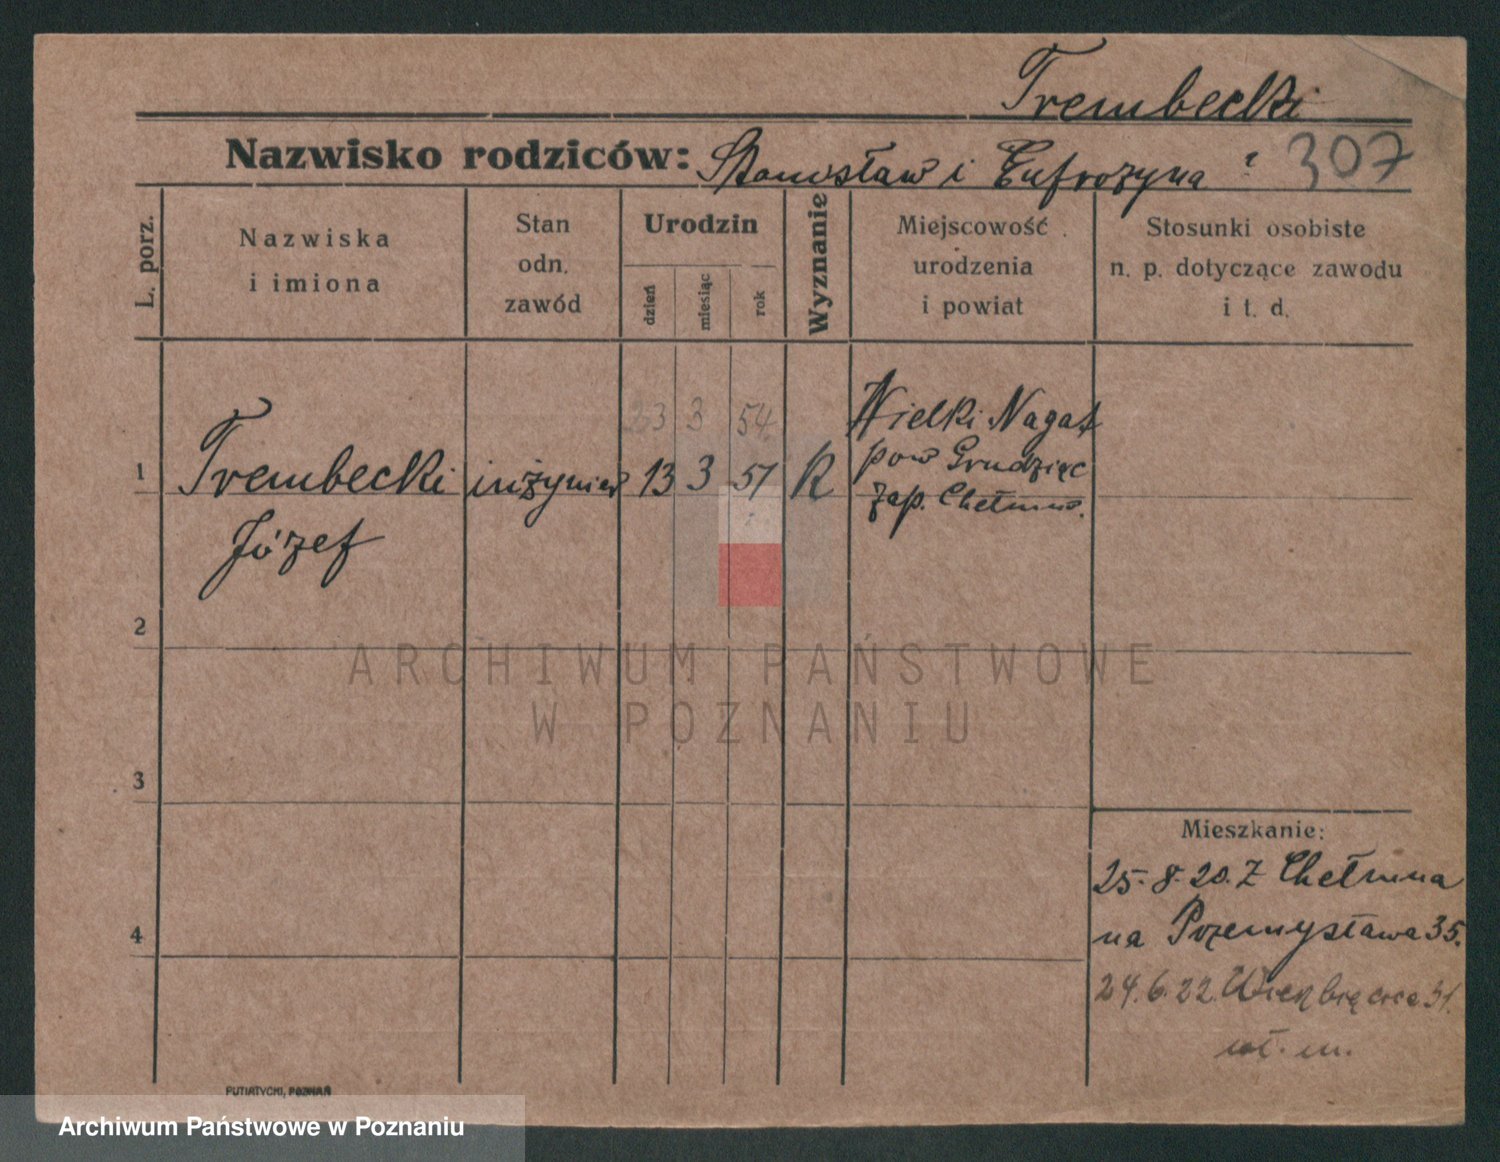 Trembecki
Nazwisko rodziców: Stanisław i Eufrozyna ? 307
L. porz.
Nazwiska
i imiona
Stan
odn.
zawód
Urodzin
dzień
miesiąc
rok
Wyznanie
Miejscowość
urodzenia
i powiat
Stosunki osobiste
n. p. dotyczące zawodu
i t. d.
23 3 54.
1 Trembecki inżynier 13 3 51 R
Józef
Wielki Nagat
pow Grudziąc
zap. Chełmno.
2
3
4
Mieszkanie:
25.8.20. Z Chełmna
na Przemysława 35.
24.6.22. Wierzbięcice 31.
wł. m.
PUTIATYCKI, POZNAŃ
ARCHIWUM PAŃSTWOWE
W POZNANIU
Archiwum Państwowe w Poznaniu